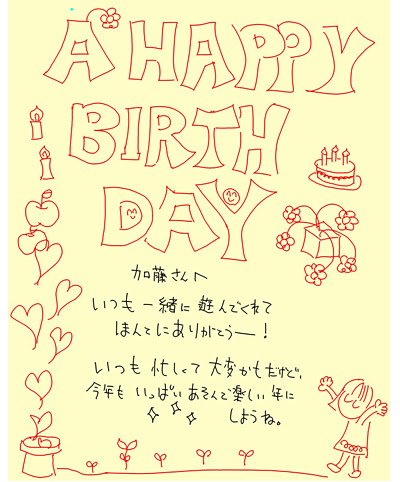 A HAPPY
BIRTH
DAY
加藤さんへ
いつも一緒に遊んでくれて
ほんとにありがとうー!
いつも忙しくて大変かもだけど、
今年もいっぱいあそんで楽しい年に
しようね。